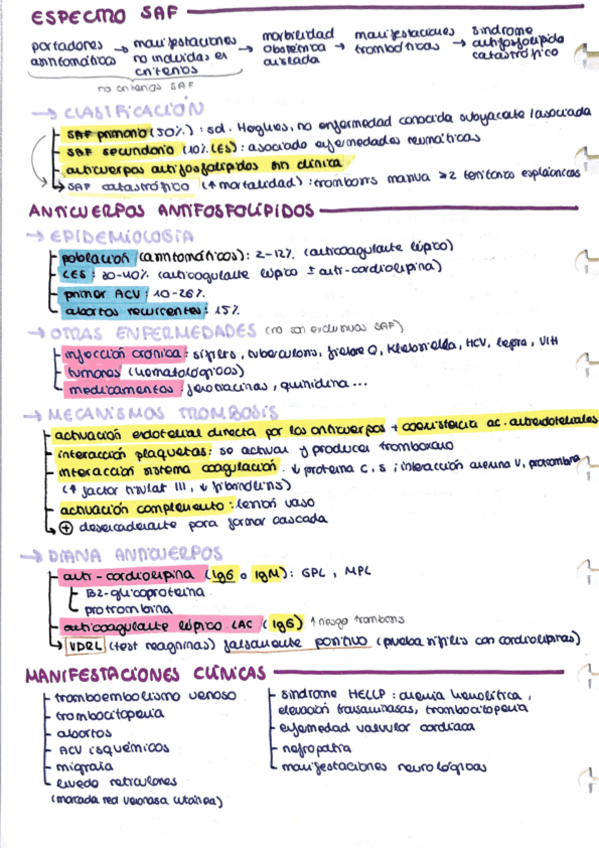 ESPECTRO SAF
portadores asintomáticos → manifestaciones no incluidas en criterios → morbilidad obstétrica aislada → manifestaciones trombóticas → síndrome antifosfolípido catastrófico
no criterios SAF
→ CLASIFICACIÓN
SAF primario (50%): sd. Hughes, no enfermedad conocida subyacente / asociada
SAF secundario (10% LES): asociado enfermedades reumáticas
anticuerpos antifosfolípidos sin clínica
SAF catastrófico (↑ mortalidad): trombosis masiva ≥2 territorios esplácnicos
ANTICUERPOS ANTIFOSFOLÍPIDOS
→ EPIDEMIOLOGÍA
población (asintomáticos): 2-12% (anticoagulante lúpico)
LES: 30-40% (anticoagulante lúpico ± anti-cardiolipina)
primer ACV: 10-26%
abortos recurrentes: 15%
→ OTRAS ENFERMEDADES (no son exclusivas SAF)
infección crónica: sífilis, tuberculosis, fiebre Q, Klebsiella, HCV, lepra, VIH
tumores (hematológicos)
medicamentos: fenotiacinas, quinidina ...
→ MECANISMOS TROMBOSIS
activación endotelial directa por los anticuerpos + coexistencia ac. antiendoteliales
interacción plaquetas: se activan y producen tromboxano
interacción sistema coagulación: ↓ proteína C, S; interacción anexina V, protrombina
(↑ factor tisular III, ↓ fibrinólisis)
activación complemento: lesión vaso
⊕ desencadenante para formar cascada
→ DIANA ANTICUERPOS
anti-cardiolipina (IgG o IgM): GPL, MPL
B2-glicoproteína
protrombina
anticoagulante lúpico LAC (IgG) ↑ riesgo trombosis
VDRL (test reaginas) falsamente positivo (prueba sífilis con cardiolipinas)
MANIFESTACIONES CLÍNICAS
tromboembolismo venoso
trombocitopenia
abortos
ACV isquémicos
migraña
livedo reticulares
(marcada red venosa cutánea)
síndrome HELLP: anemia hemolítica,
elevación transaminasas, trombocitopenia
enfermedad valvular cardiaca
nefropatía
manifestaciones neurológicas